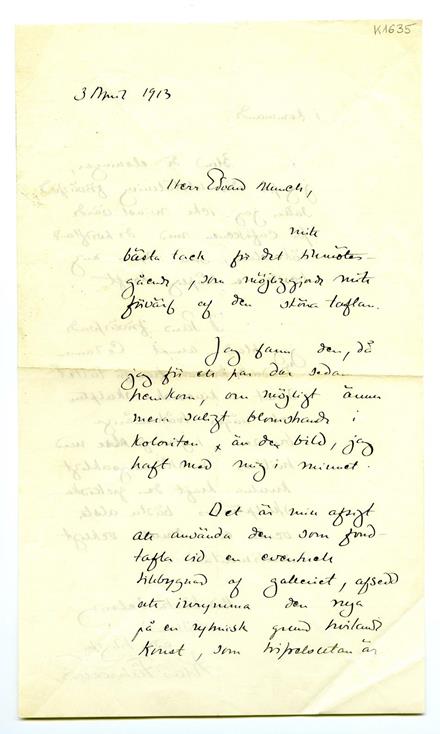 K1635
3 April 1913
Herr Edvard Munch,
mitt
bästa tack för det tillmötes-
gående, som möjliggjorde mitt
förvärf af den stora taflan.
Jag fann den, då
jag för ett par dar sedan
hemkom, om möjligt ännu
mera saligt blomstrande i
koloriten än den bild, jag
haft med mig i minnet.
Det är min afsigt
att använda den som fond-
tafla vid en eventuell
tillbyggnad af galleriet, afsedd
att inrymma den nya
på en rytmisk grund hvilande
konst, som tvifvelsutan är